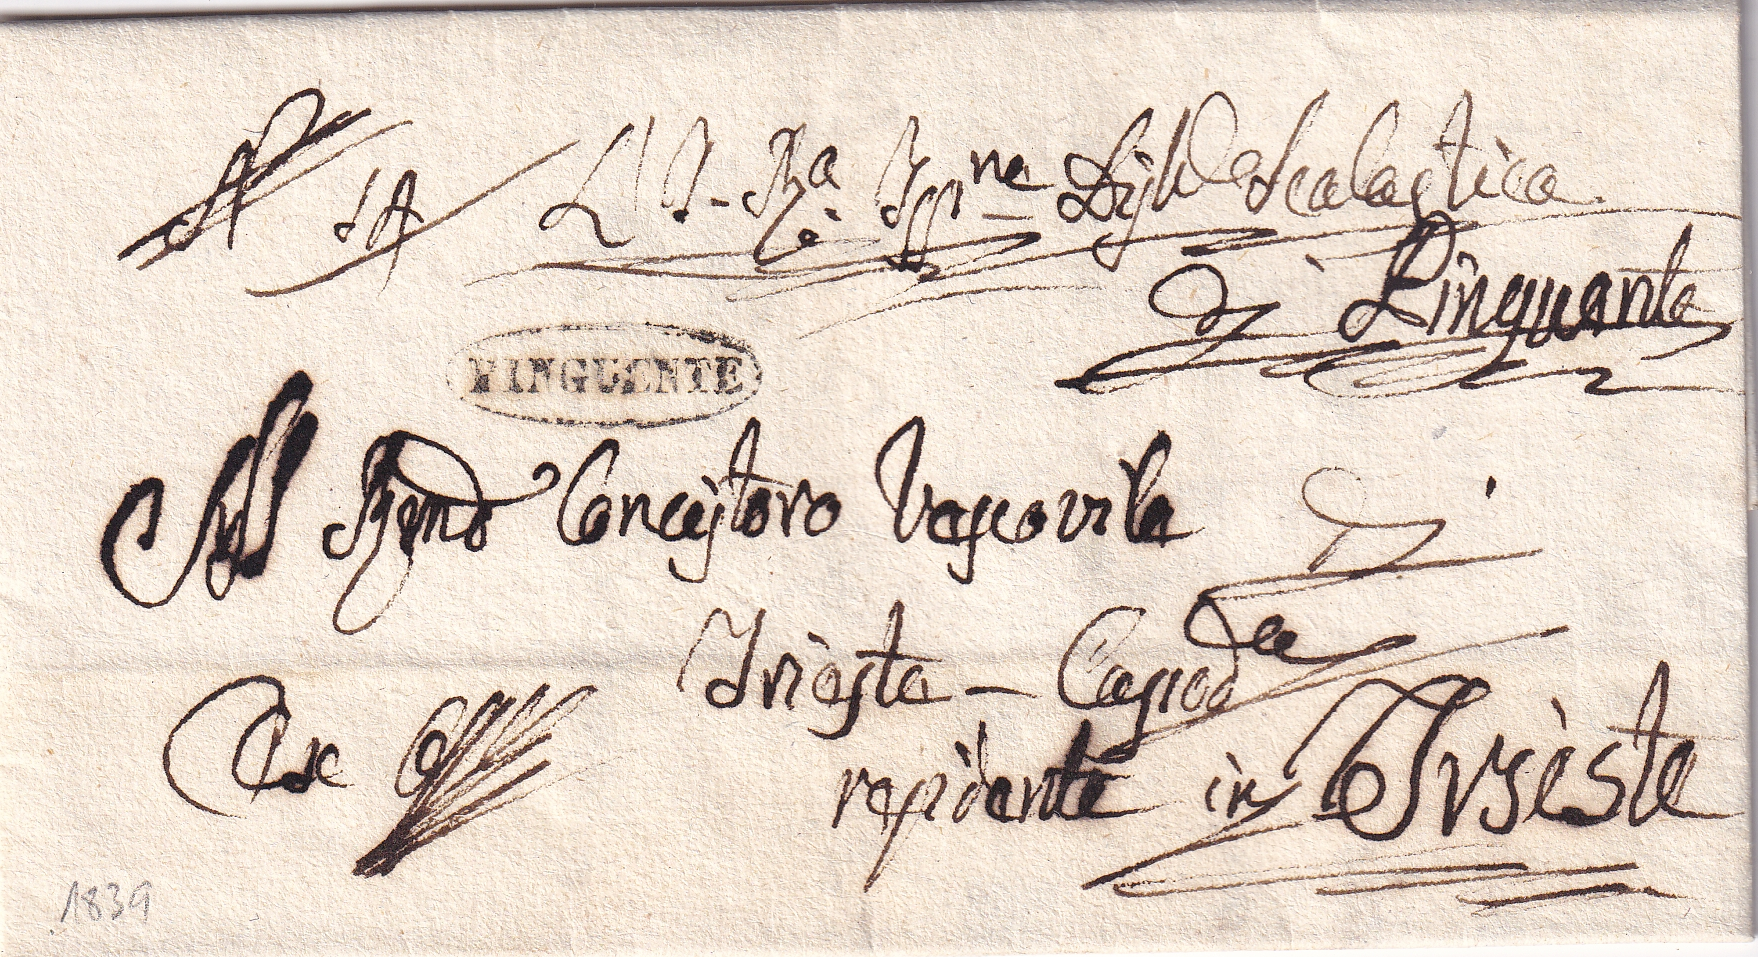 L'I. R. Ispne Distle Scolastica
di Pinguente
PINGUENTE
All Rymo Concistoro Vescovile di
Trieste - Capod
residente in Trieste
Ex Offo
1839